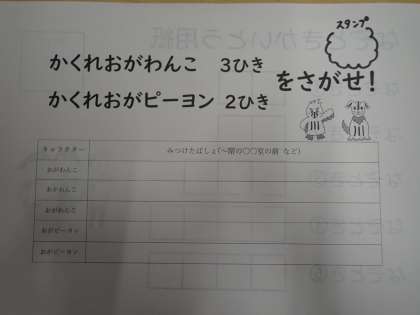 スタンプ
かくれおがわんこ 3ひき
をさがせ!
かくれおがピーヨン 2ひき
キャラクター みつけたばしょ(〜階の〇〇室の前 など)
おがわんこ
おがわんこ
おがわんこ
おがピーヨン
おがピーヨン
なぞときかいとう用紙